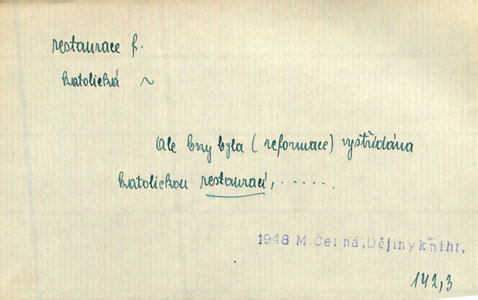 restaurace f.
katolická ~
Ale brzy byla (reformace) vystřídána
katolickou restaurací, ......
1948 M.Černá, Dějiny kniht,
142,3